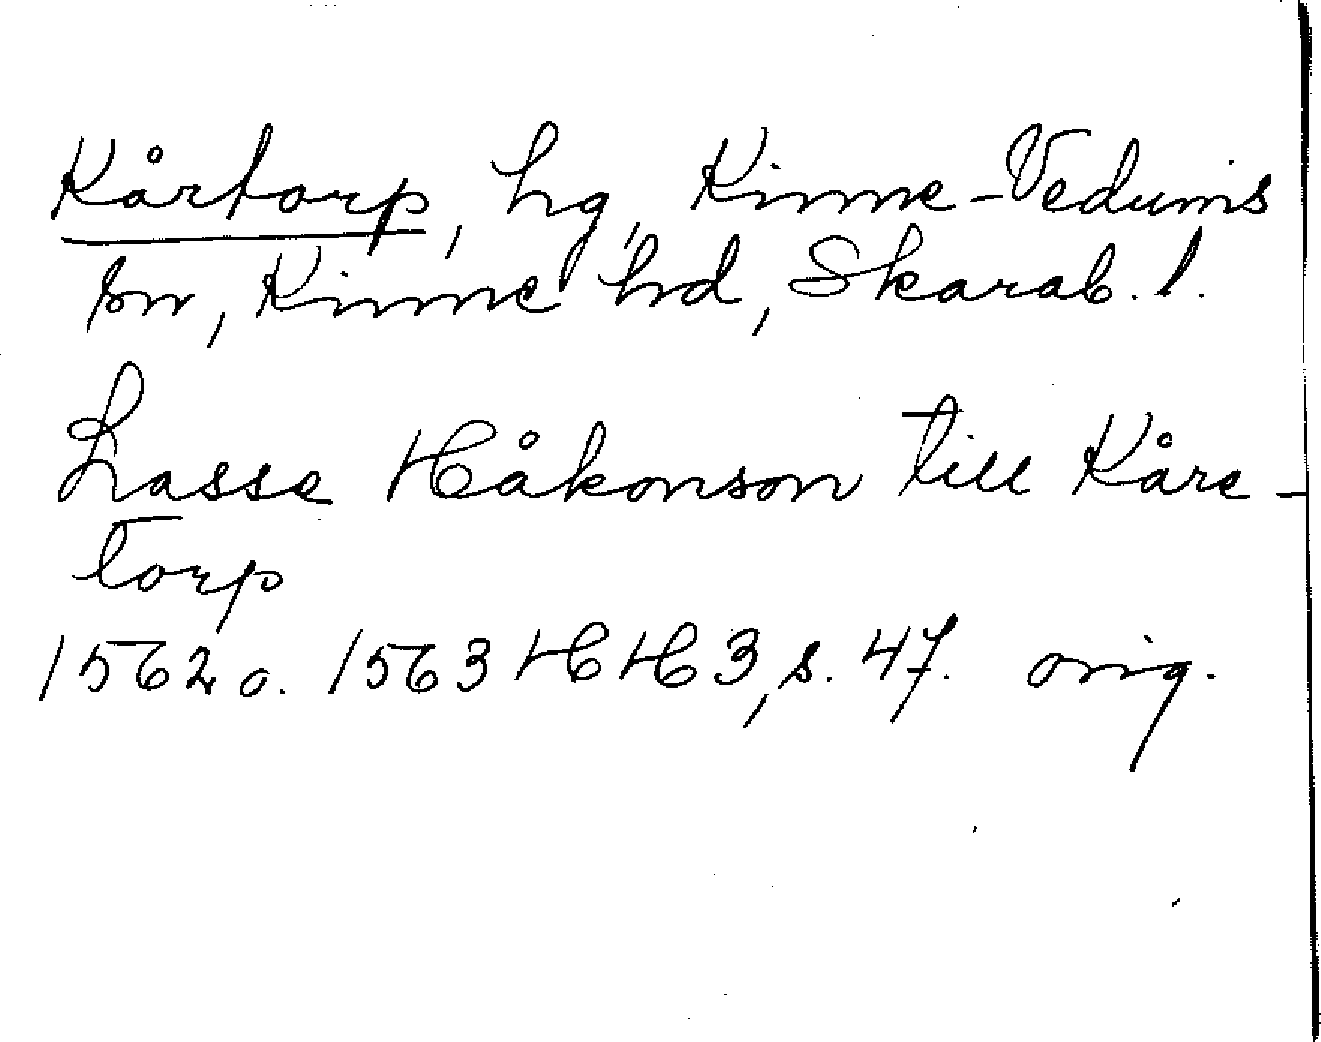 Kårtorp, hg, Kinne-Vedums
sn, Kinne hd, Skarab. l.
Lasse Håkonson till Kåre-
torp
1562 o. 1563 HH 3, s. 47. orig.